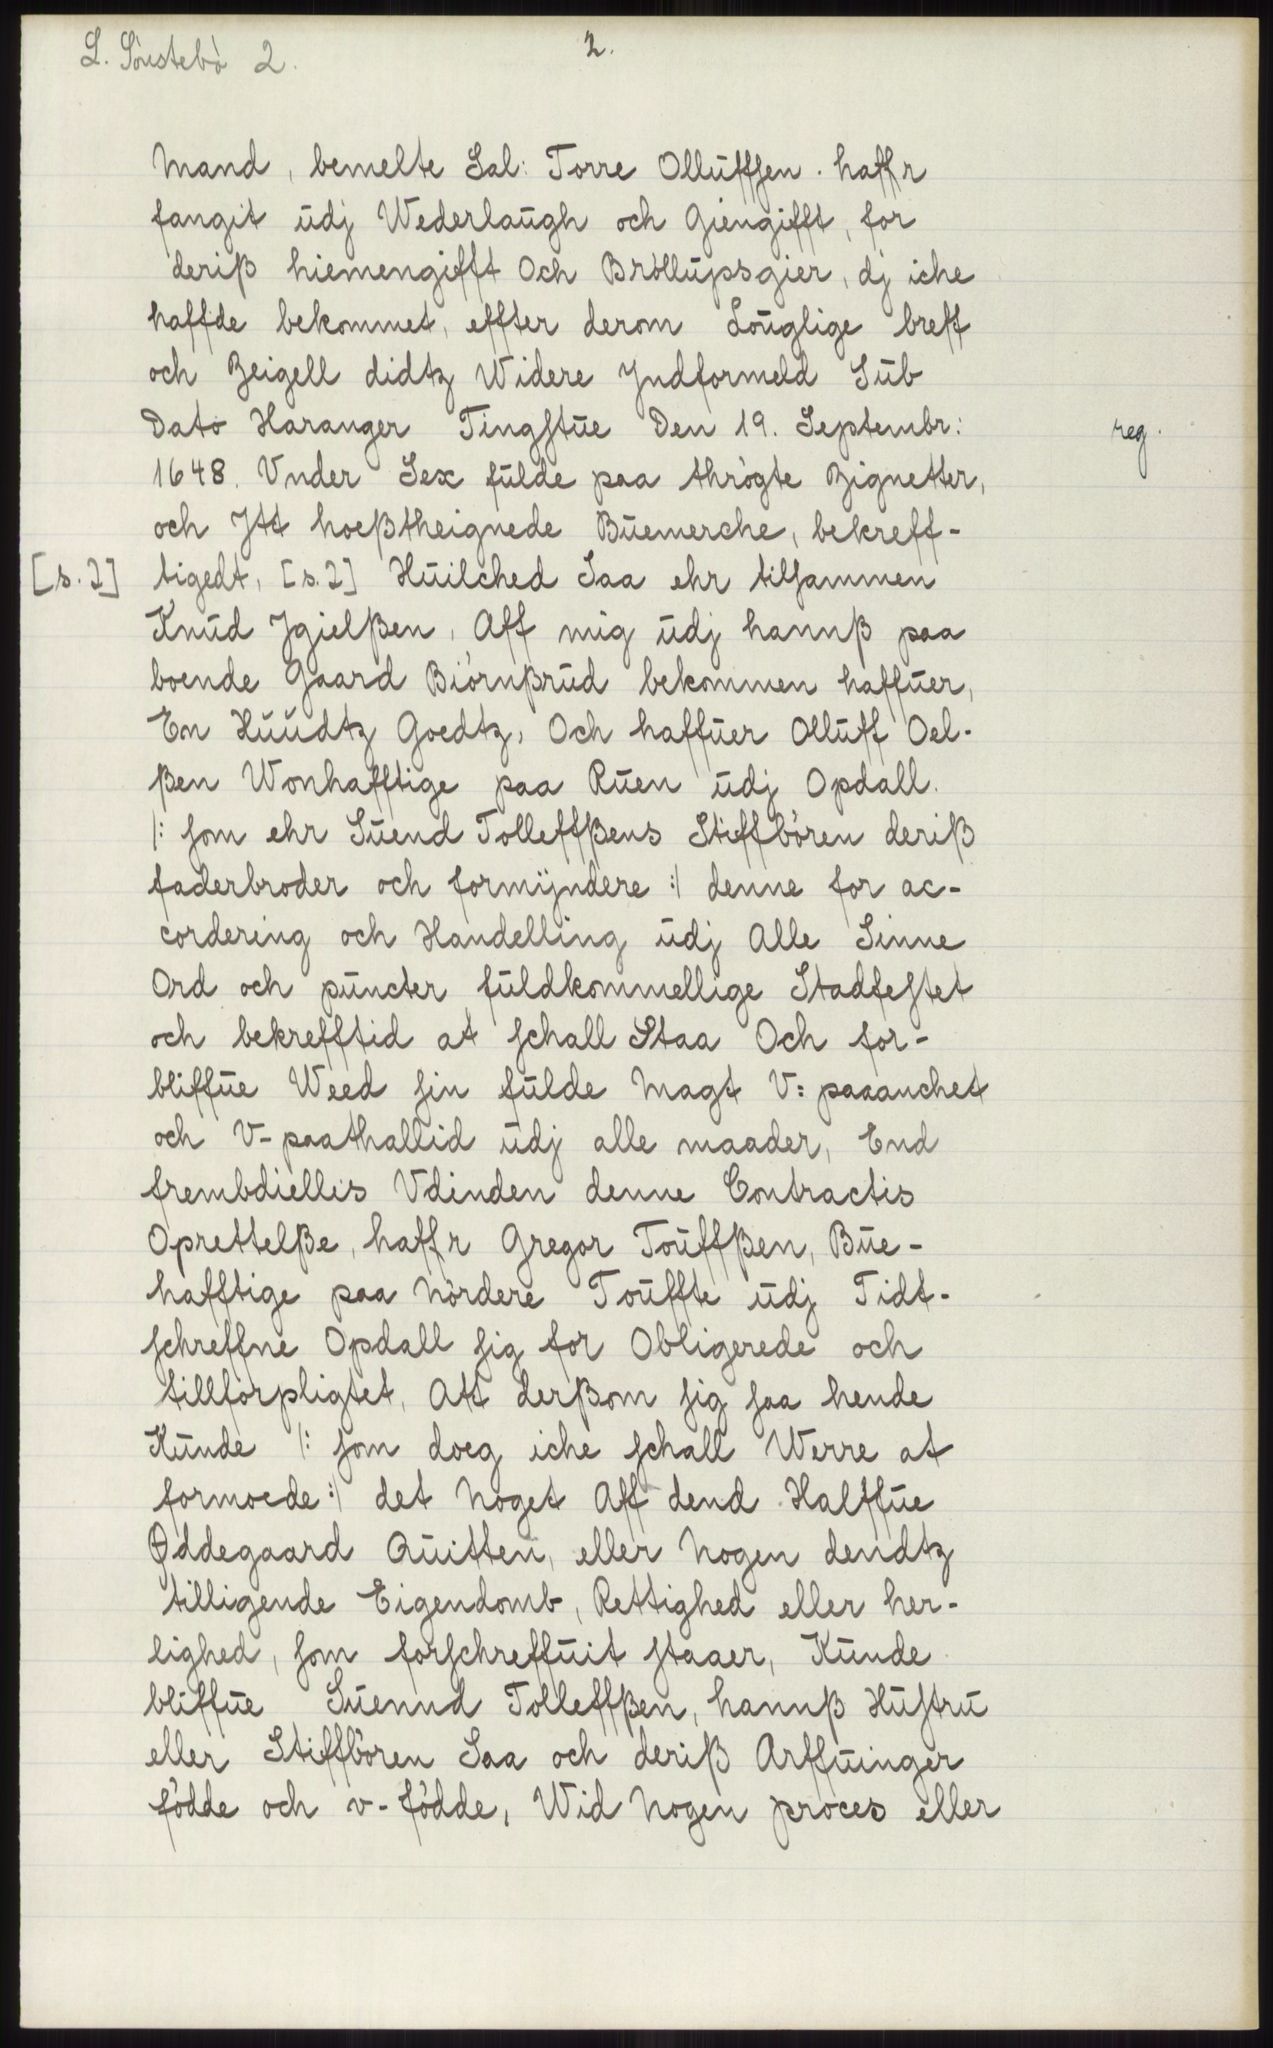 S. Sönstebö 2.
2.
Mand, bemelte Sal: Torre Olluffsen. haffr
fangit udj Wederlaugh och Giengifft, for
deriß hiemengifft Och Bröllupsgier, dj iche
haffde bekommet, effter derom Louglige breff
och Zeigell didtz Widere Jndformeld Sub
Dato Haranger Tingstue Den 19. Septembr: reg.
1648. Vnder Sex fulde paa thrögte Zignetter,
och Jtt hoeßtheignede Buemerche, bekreff-
[s. 2] tigedt, [s. 2] Huilched Saa ehr tilsammen
Knud Jgielßen, Aff mig udj hannß paa
boende Gaard Biörnßrud bekommen haffuer,
En Huudtz Goedtz, Och haffuer Olluff Oel-
ßen Wonhafftige paa Ruen udj Opdall.
/: som ehr Suend Tolleffßens Stiffbören deriß
faderbroder och formÿndere :/ denne for ac-
cordering och Handelling udj Alle Sinne
Ord och puncter fuldkommellige Stadfestet
och bekrefftid at schall Staa Och for-
bliffue Weed sin fulde Magt V: paaanchet
och V-paathallid udj alle maader, End
frembdiellis Vdinden denne Contractis
Oprettelße, haffr Gregor Touffßen, Bue-
hafftige paa Nördere Touffte udj Tidt-
schreffne Opdall sig for Obligerede och
tillforpligtet, Att derßom sig saa hende
Kunde /: som doeg iche schall Werre at
formoede :/ det Noget Aff dend Halffue
Øddegaard Quitten, eller Nogen dendtz
tilligende Eigendomb, Rettighed eller her-
lighed, som forschreffuit staaer, Kunde
bliffue Suennd Tolleffßen, hannß Hustru
eller Stiffbören Saa och deriß Arffuinger
födde och v-födde, Wid Nogen proces eller